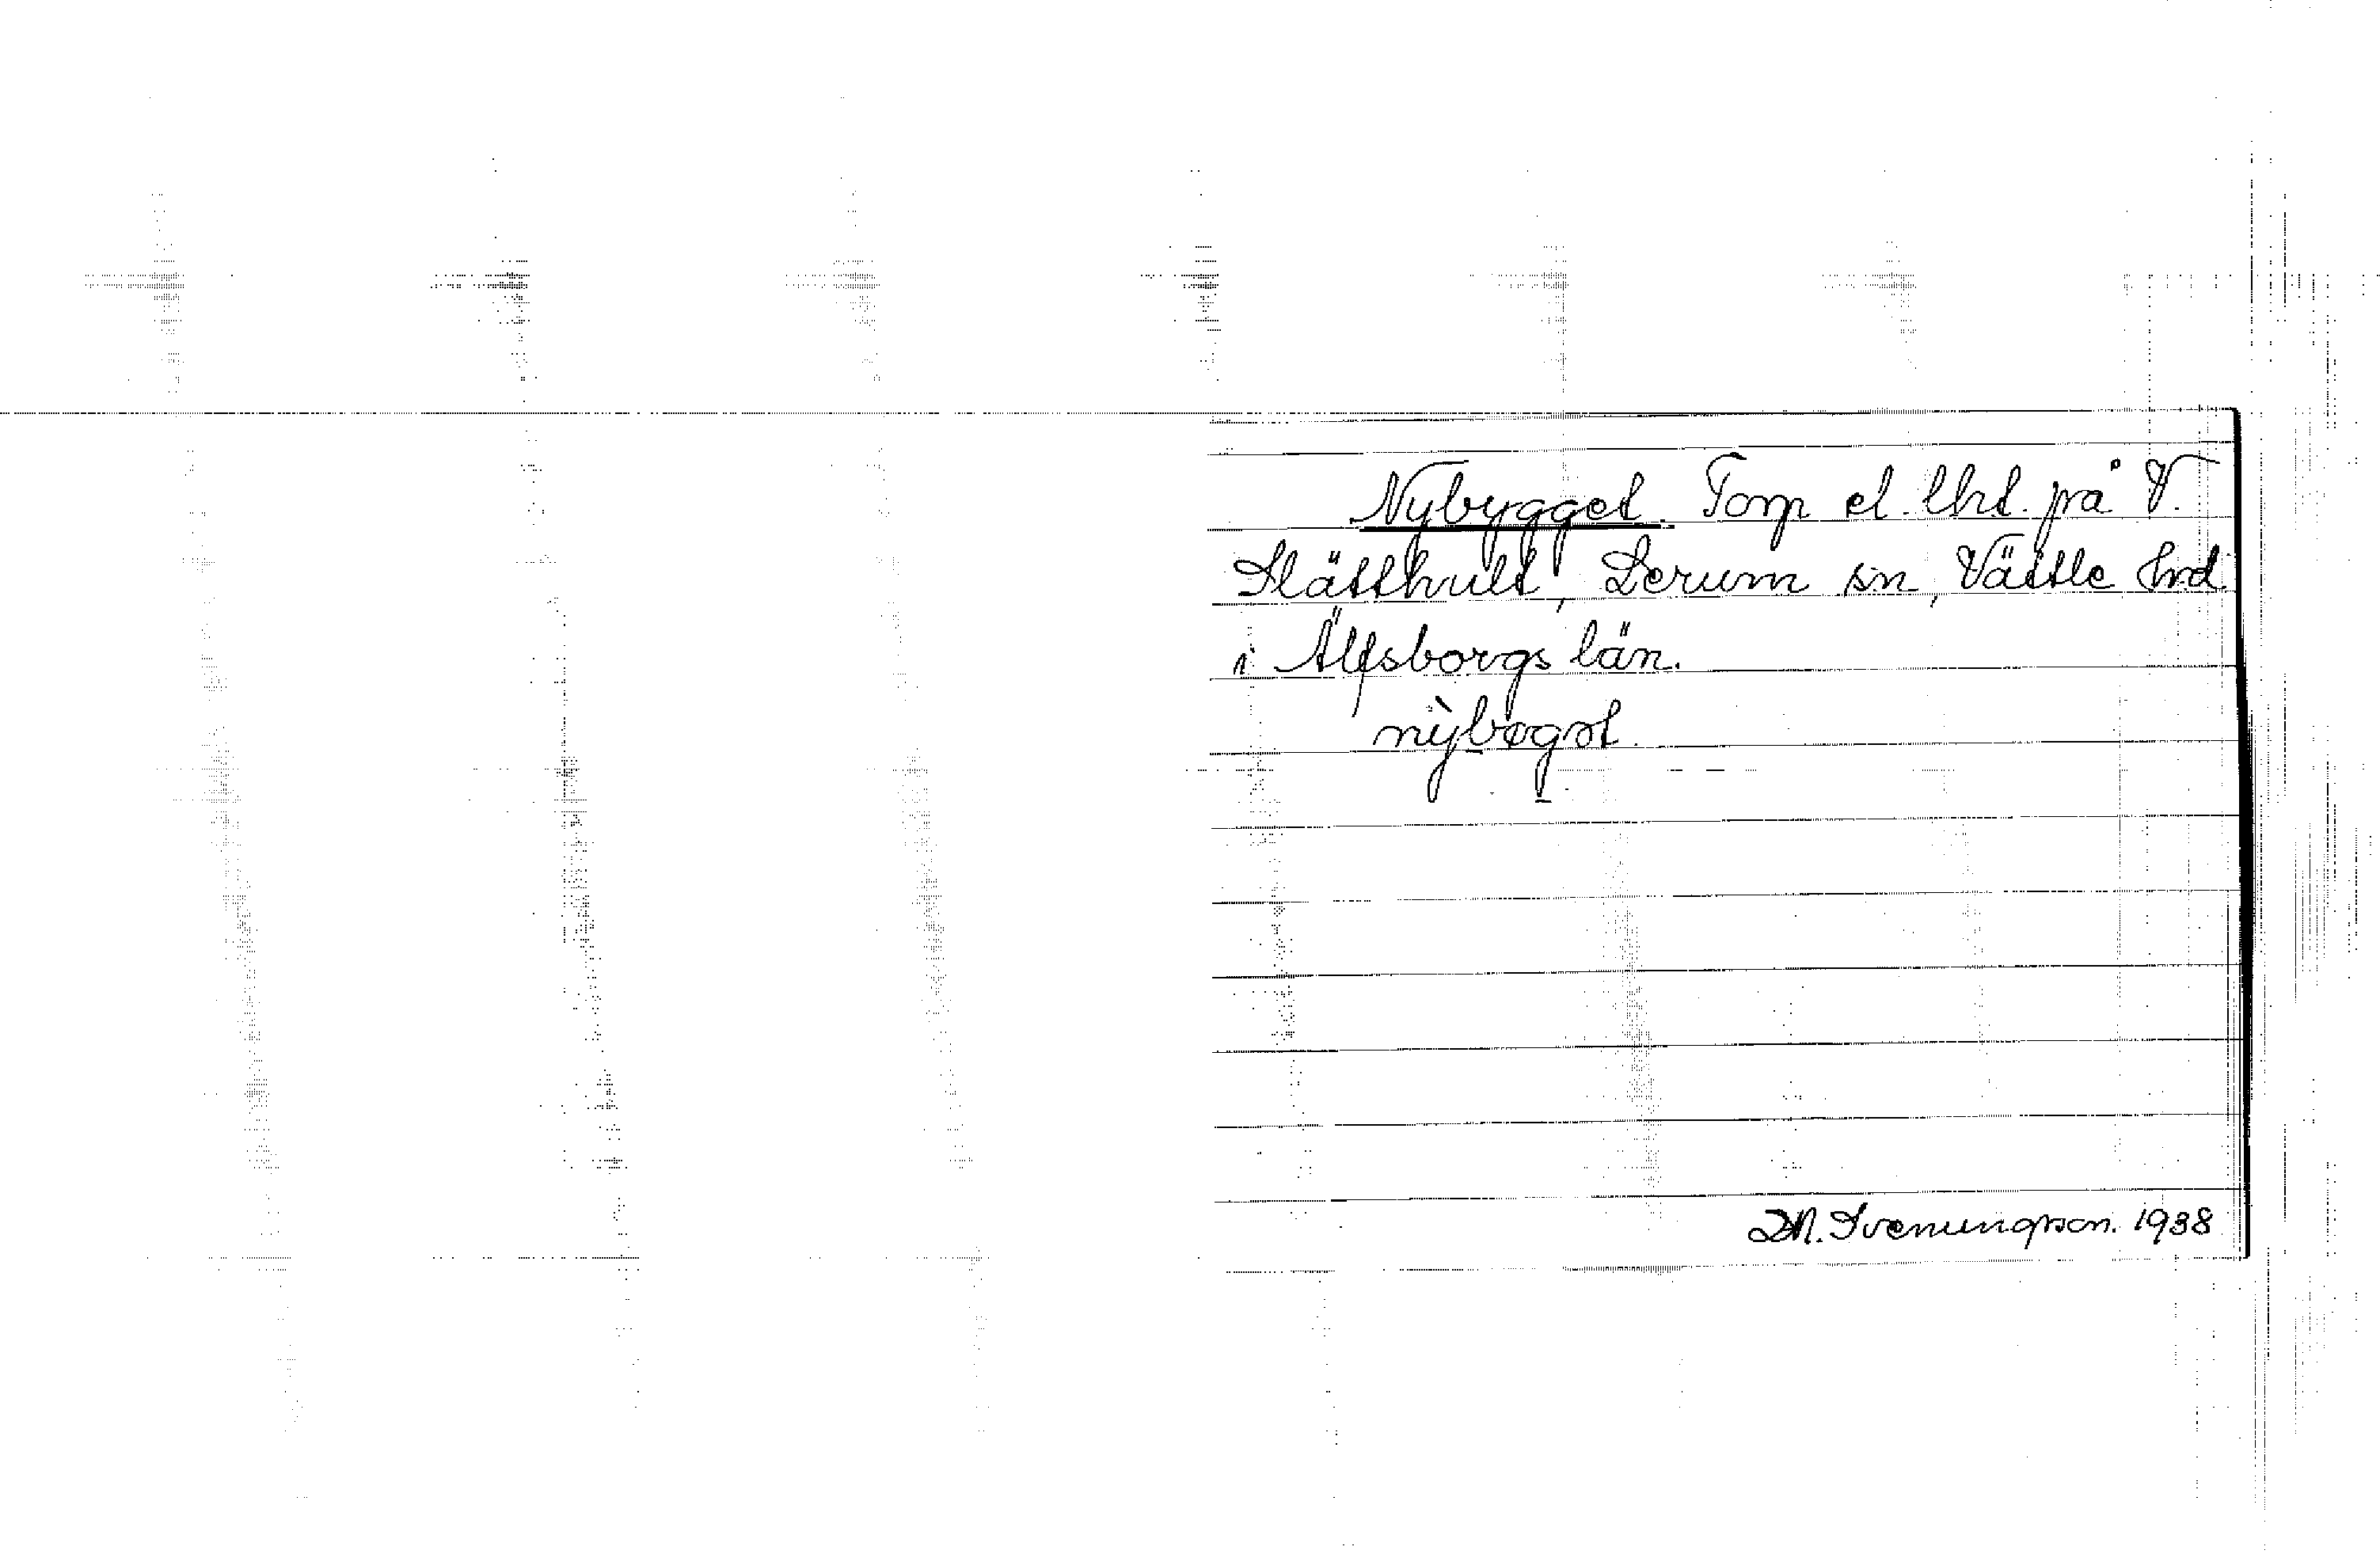 Nybygget. Torp el. lht. på V.
Slätthult, Lerum sn, Vättle hrd
i Älfsborgs län.
nỳbøgət.
D.N. Svenungsson. 1938